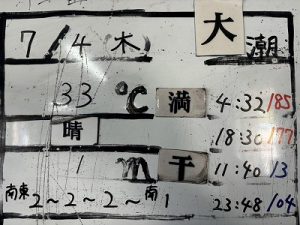 7/4 木 大潮
33℃ 満 4:32/185
晴 18:30/177
1m 干 11:40/13
南東2~2~2~南1 23:48/104